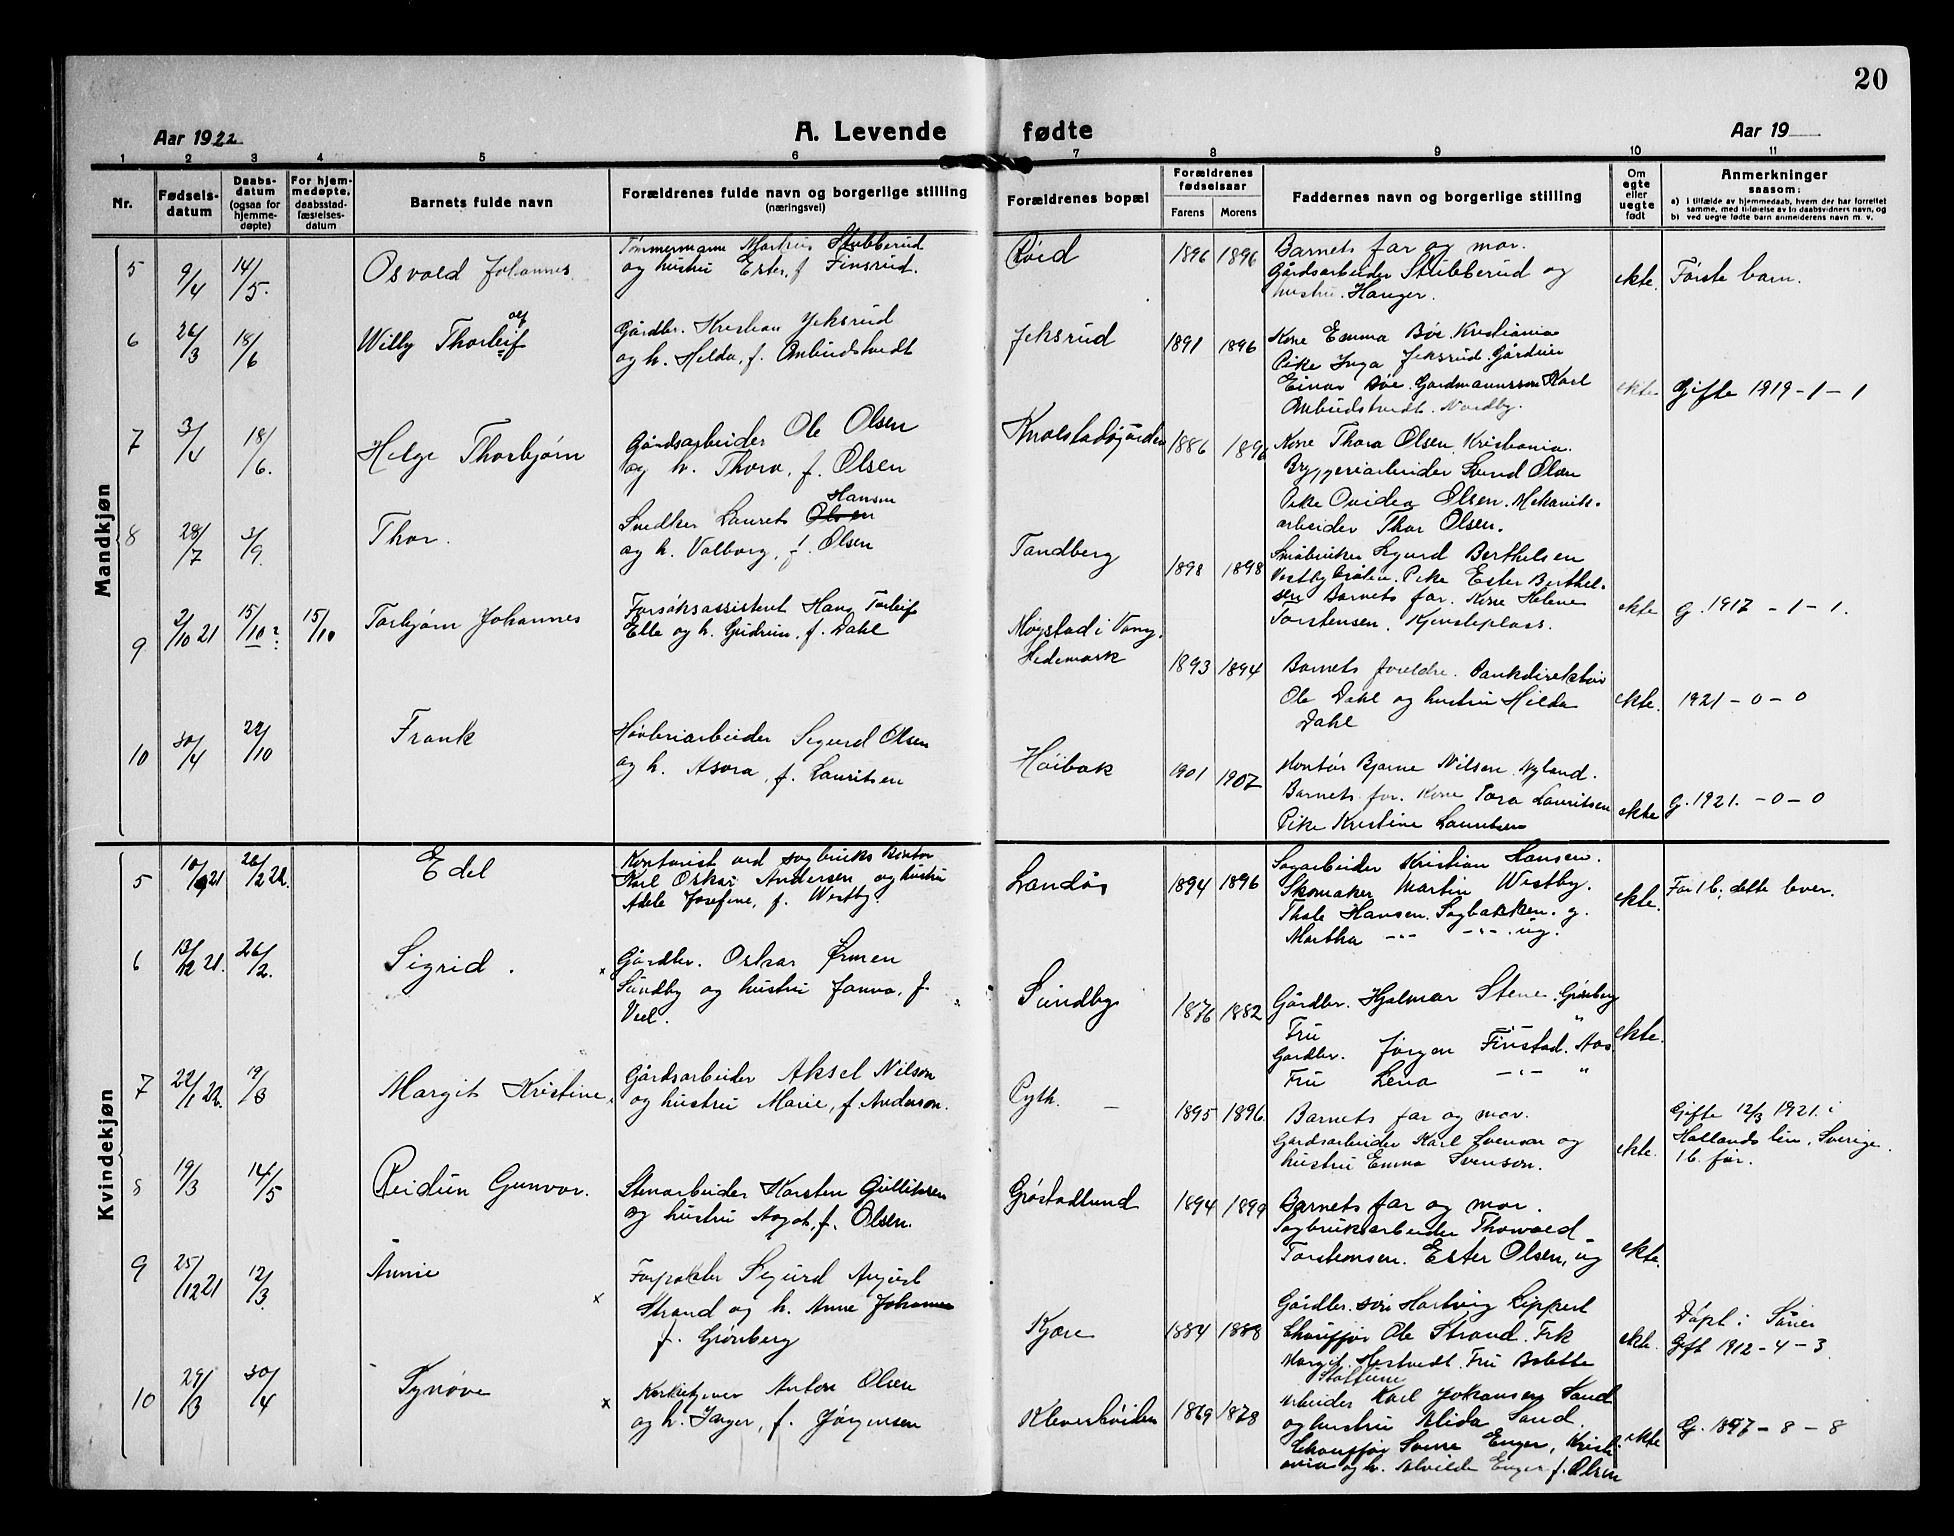 20
Aar 1922
A. Levende fødte
Aar 19
1 2 3 4 5 6 7 8 9 10 11
Nr.
Fødselsdatum
Daabsdatum (ogsaa for hjemmedøpte)
For hjemmedøpte, daabsstadfæstelsesdatum
Barnets fulde navn
Forældrenes fulde navn og borgerlige stilling
(næringsvei)
Forældrenes bopæl
Forældrenes fødselsaar
Farens Morens
Faddernes navn og borgerlige stilling
Om egte eller uegte født
Anmerkninger
saasom:
a) i tilfælde av hjemmedaab, hvem der har forrettet
samme, med tilføielse av to daabsvidners navn, og
b) ved uegte fødte barn anmelderens navn m. v.
Mandkjøn
5 9/4 14/5. Osvald Johannes
Tømmermann Markus Stubberud
og hustru Ester, f Finsrud.
1896 1896
Barnets far og mor.
Gårdsarbeider Stubberud og
hustru. Hauger.
ekte. Første barn.
6 26/3 18/6 Willy Thorleif
Gårdbr. Kristian Jeksrud
og h. Hilda, f.
Jeksrud 1891 1896
Kone Emma Bøe Kristiania
Pike Inga Jeksrud. Gårdeier
Einar Bøe. Gardmannssøn Karl
Nordby.
ekte Gifte 1919 - 1 - 1
7 3/4 18/6. Helge Thorbjørn
Gårdsarbeider Ole Olsen
og h. Thora, f. Olsen
1886 1896
Kone Thora Olsen. Kristiania.
Bryggeriarbeider Olsen
Pike Olsen. Mekanik-
arbeider Thor Olsen.
8 28/7 3/9. Thor.
Snedker Laurets Olsen Hansen
og h. Valborg, f. Olsen
Tandberg 1898 1898
Småbruker Sigurd Berthelsen
Pike Ester Berthel-
sen Barnets far. Kone Helene
Torstensen.
ekte G. 1917 - 1 - 1.
9 2/10 21 15/10 ? 15/10 Torbjørn Johannes
Forsøksassistent Hans Torleif
Elle og h. Gudrun, f. Dahl
Møystad i Vang,
Hedemark 1893 1894
Barnets foreldre. Bankdirektør
Ole Dahl og hustru Hilda
Dahl
ekte. 1921 - 0 - 0
10 30/4 22/10 Frank
Høvleriarbeider Sigurd Olsen
og h. Asora, f. Lauritsen
Høibak 1901 1902
Kontør Bjarne Nilsen. Nyland.
Barnets far. Kone Tora Lauritsen
Pike Kristine Lauritsen
ekte G. 1921. - 0 - 0
Kvindekjøn
5 10/9 21 26/2 22. Edel
Kontorist ved sagbruks kontor
Karl Oskar Andersen og hustru
Adele Josefine, f. Westby.
Landås 1894 1896
Sagarbeider Kristian Hansen.
Skomaker Martin Westby.
Thale Hansen. Sagbakken. g.
Martha -"- -"- ug.
ekte. Før 1 b, dette lever.
6 13/12 21. 26/2. Sigrid.
x Gårdbr. Oskar Ormen
Sundby og hustru Janna, f.
Veel.
Sundby 1876 1882
Gårdbr. Hjalmar Stene. Grønberg
Fru "
Gårdbr. Jørgen Finstad. Aas
Fru Lena -"- "
ekte.
7 22/1 22. 19/3 Margit Kristine.
Gårdsarbeider Aksel Nilson
og hustru Marie, f. Anderson.
1895 1896.
Barnets far og mor.
Gårdsarbeider Karl Svenson og
hustru Emma Svenson.
ekte. Gifte 12/3 1921. i
Hallands län, Sverige.
1 b. før.
8 19/3 14/5 Reidun Gunvor.
Stenarbeider Karsten Gulliksen
og hustru Aagot, f. Olsen.
Grøstadlund 1894 1899
Barnets far og mor.
Sagbruksarbeider Thorvald
Torstensen. Ester Olsen, ug
ekte.
9 25/12 21 12/3. Annie
x Forpakter Sigurd August
Strand og h. Anne Johanne
f. Grønberg
Kjære 1884 1888
Gårdbr. søn Hartvig Lippert
Chauffør Ole Strand. Frk
Margit Hestvedt. Fru Bolette
ekte. Døpt i Sørum
Gift 1912 - 4 - 3.
10 29/3 30/4 Synøve
x Kirketjener Anton Olsen
og h. Inger, f. Jørgensen
1869 1878
Arbeider Karl Johansen Sand
og hustru Alida Sand.
Chauffør Enger, Kristi-
ania og h. Alvilde Enger f. Olsen
ekte G. 1897 - 8 - 8